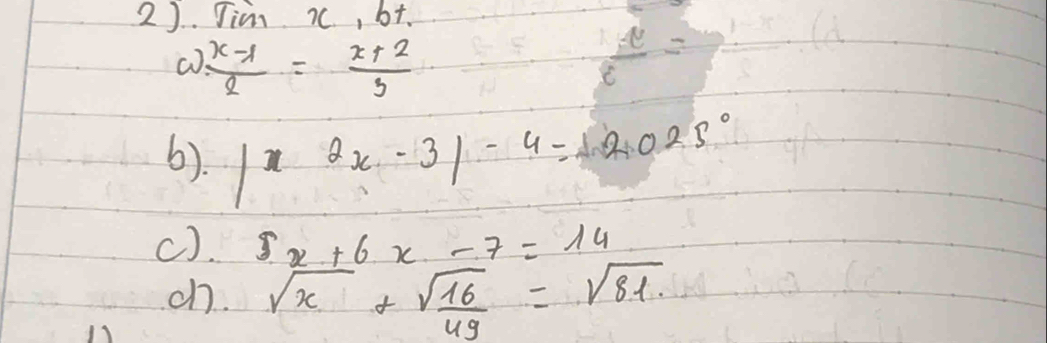 2). Tìm x, bt.
a). x-1/2 = x+2/3
b). | 2x - 3| - 4 = 2025°
c). 5x + 6x - 7 = 14
d). √x + √16/49 = √81.